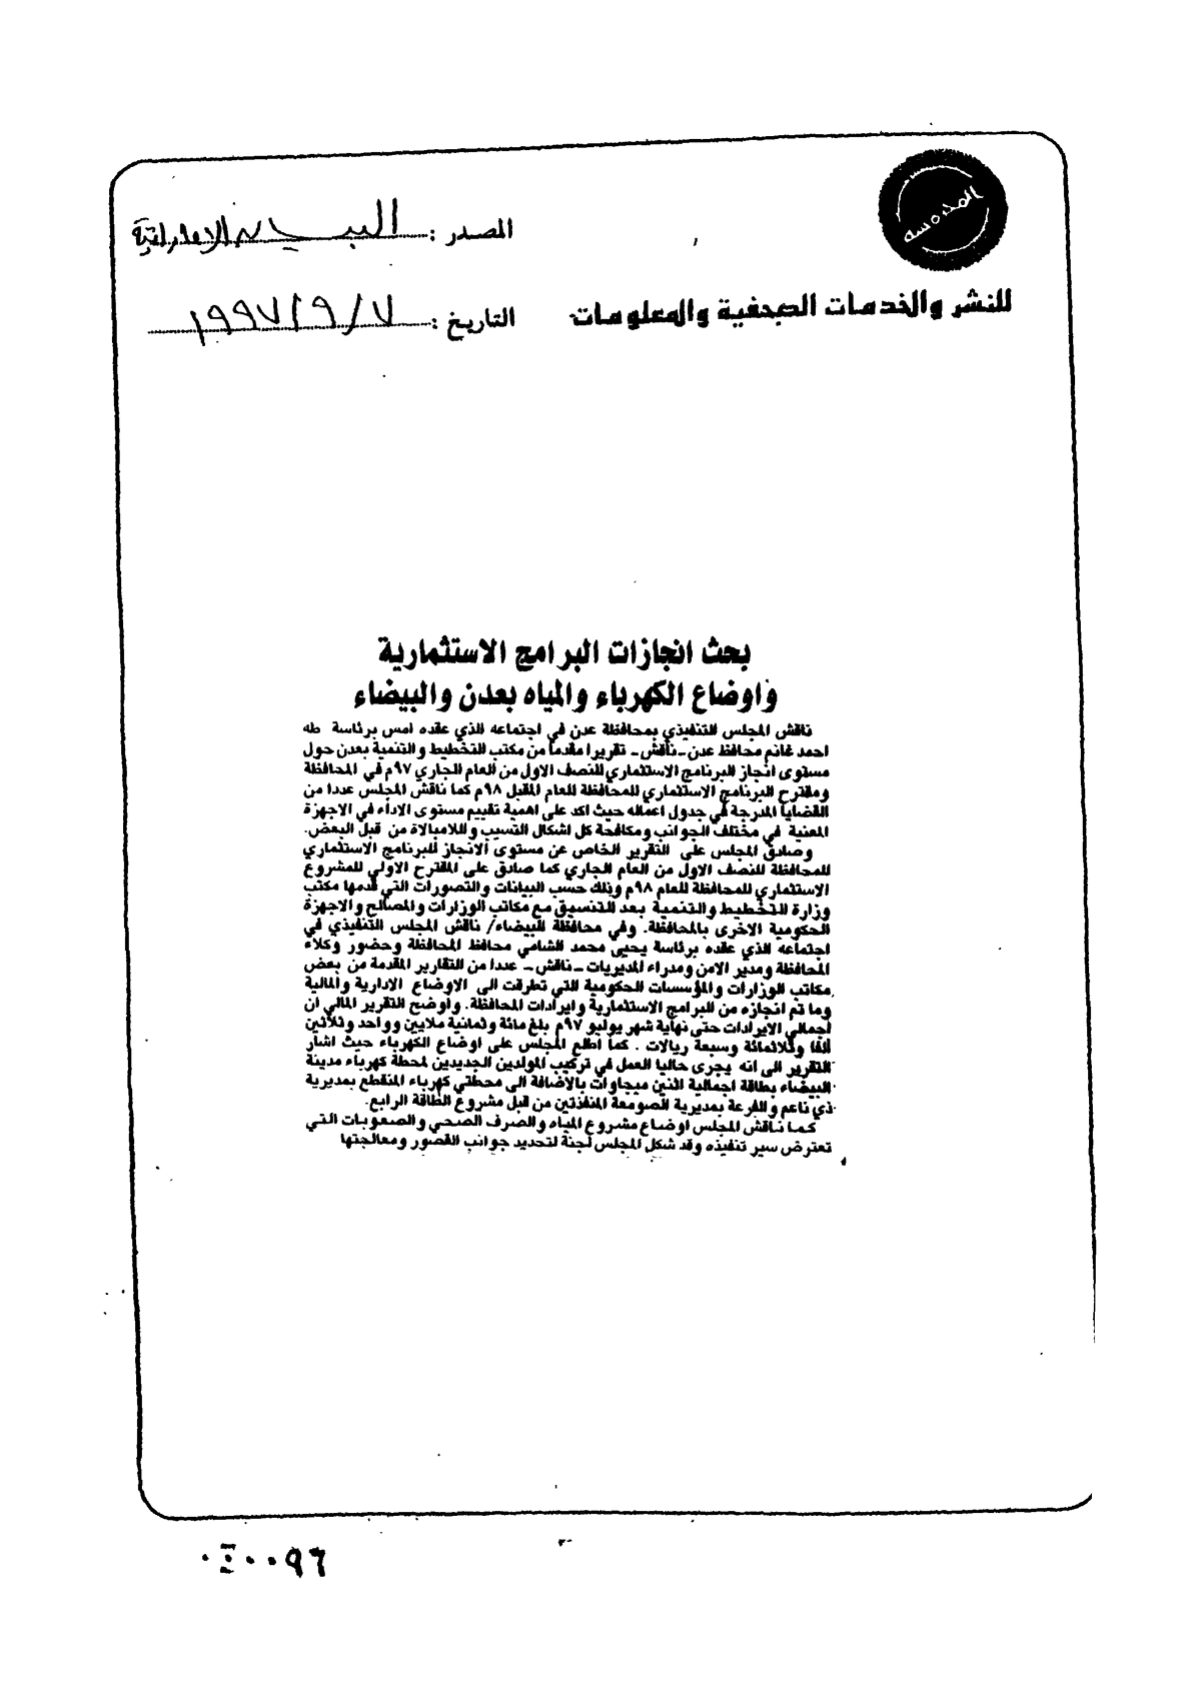 المصدر : البيان الاماراتية
للنشر والخدمات الصحفية والمعلومات
التاريخ : ١٩٩٧/٩/٧
بحث انجازات البرامج الاستثمارية
واوضاع الكهرباء والمياه بعدن والبيضاء
ناقش المجلس التنفيذي بمحافظة عدن في اجتماعه الذي عقده امس برئاسة طه
احمد غانم محافظ عدن ـ ناقش ـ تقريرا مقدما من مكتب التخطيط والتنمية بعدن حول
مستوى انجاز البرنامج الاستثماري للنصف الاول من العام الجاري ٩٧م في المحافظة
ومقترح البرنامج الاستثماري للمحافظة للعام المقبل ٩٨م كما ناقش المجلس عددا من
القضايا المدرجة في جدول اعماله حيث اكد على اهمية تقييم مستوى الاداء في الاجهزة
المعنية في مختلف الجوانب ومكافحة كل اشكال التسيب واللامبالاة من قبل البعض.
وصادق المجلس على التقرير الخاص عن مستوى الانجاز للبرنامج الاستثماري
للمحافظة للنصف الاول من العام الجاري كما صادق على المقترح الاولي للمشروع
الاستثماري للمحافظة للعام ٩٨م وذلك حسب البيانات والتصورات التي قدمها مكتب
وزارة التخطيط والتنمية بعد التنسيق مع مكاتب الوزارات والمصالح والاجهزة
الحكومية الاخرى بالمحافظة. وفي محافظة البيضاء/ ناقش المجلس التنفيذي في
اجتماعه الذي عقده برئاسة يحيى محمد الشامي محافظ المحافظة وحضور وكلاء
المحافظة ومدير الامن ومدراء المديريات ـ ناقش ـ عددا من التقارير المقدمة من بعض
مكاتب الوزارات والمؤسسات الحكومية التي تطرقت الى الاوضاع الادارية والمالية
وما تم انجازه من البرامج الاستثمارية وايرادات المحافظة. واوضح التقرير المالي ان
اجمالي الايرادات حتى نهاية شهر يوليو ٩٧م بلغ مائة وثمانية ملايين وواحد وثلاثين
الفا وثلاثمائة وسبعة ريالات . كما اطلع المجلس على اوضاع الكهرباء حيث اشار
التقرير الى انه يجرى حاليا العمل في تركيب المولدين الجديدين لمحطة كهرباء مدينة
البيضاء بطاقة اجمالية اثنين ميجاوات بالاضافة الى محطتي كهرباء المنقطع بمديرية
ذي ناعم والفرعة بمديرية الصومعة المنفذتين من قبل مشروع الطاقة الرابع.
كما ناقش المجلس اوضاع مشروع المياه والصرف الصحي والصعوبات التي
تعترض سير تنفيذه وقد شكل المجلس لجنة لتحديد جوانب القصور ومعالجتها